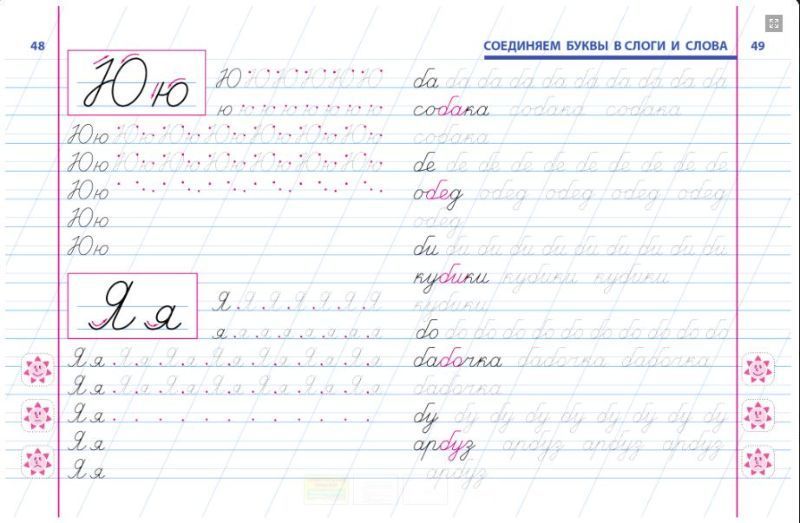 48
Ю ю
Ю Ю Ю Ю Ю Ю
ю ю ю ю ю ю ю ю
Юю Юю Юю Юю Юю Юю Юю
Юю Юю Юю Юю Юю Юю Юю
Юю
Юю
Юю
Я я
Я Я Я Я Я Я Я
я я я я я я я я
Яя Яя Яя Яя Яя Яя Яя
Яя Яя Яя Яя Яя Яя Яя
Яя
Яя
Яя
СОЕДИНЯЕМ БУКВЫ В СЛОГИ И СЛОВА 49
ба ба ба ба ба ба ба ба ба ба
собака собака собака
собака
бе бе бе бе бе бе бе бе бе бе
обед обед обед обед обед
обед
би би би би би би би би би би
кубики кубики кубики
кубики
бо бо бо бо бо бо бо бо бо бо
бабочка бабочка бабочка
бабочка
бу бу бу бу бу бу бу бу бу
арбуз арбуз арбуз арбуз
арбуз